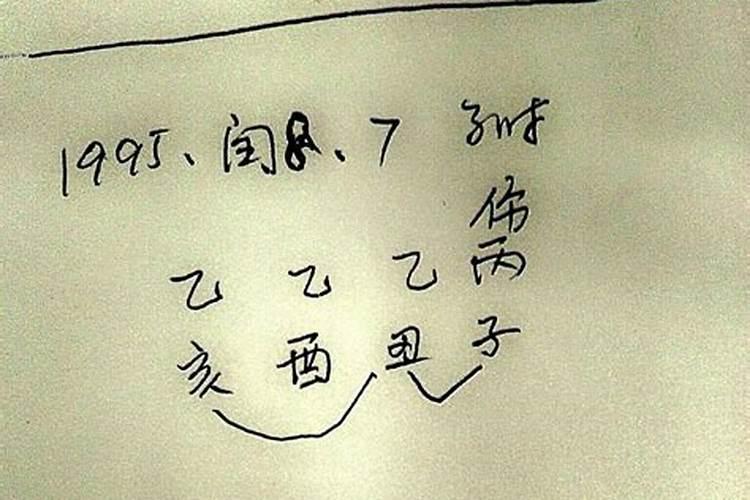 1995、闰8、7 子时
伤
乙 乙 乙 丙
亥 酉 丑 子